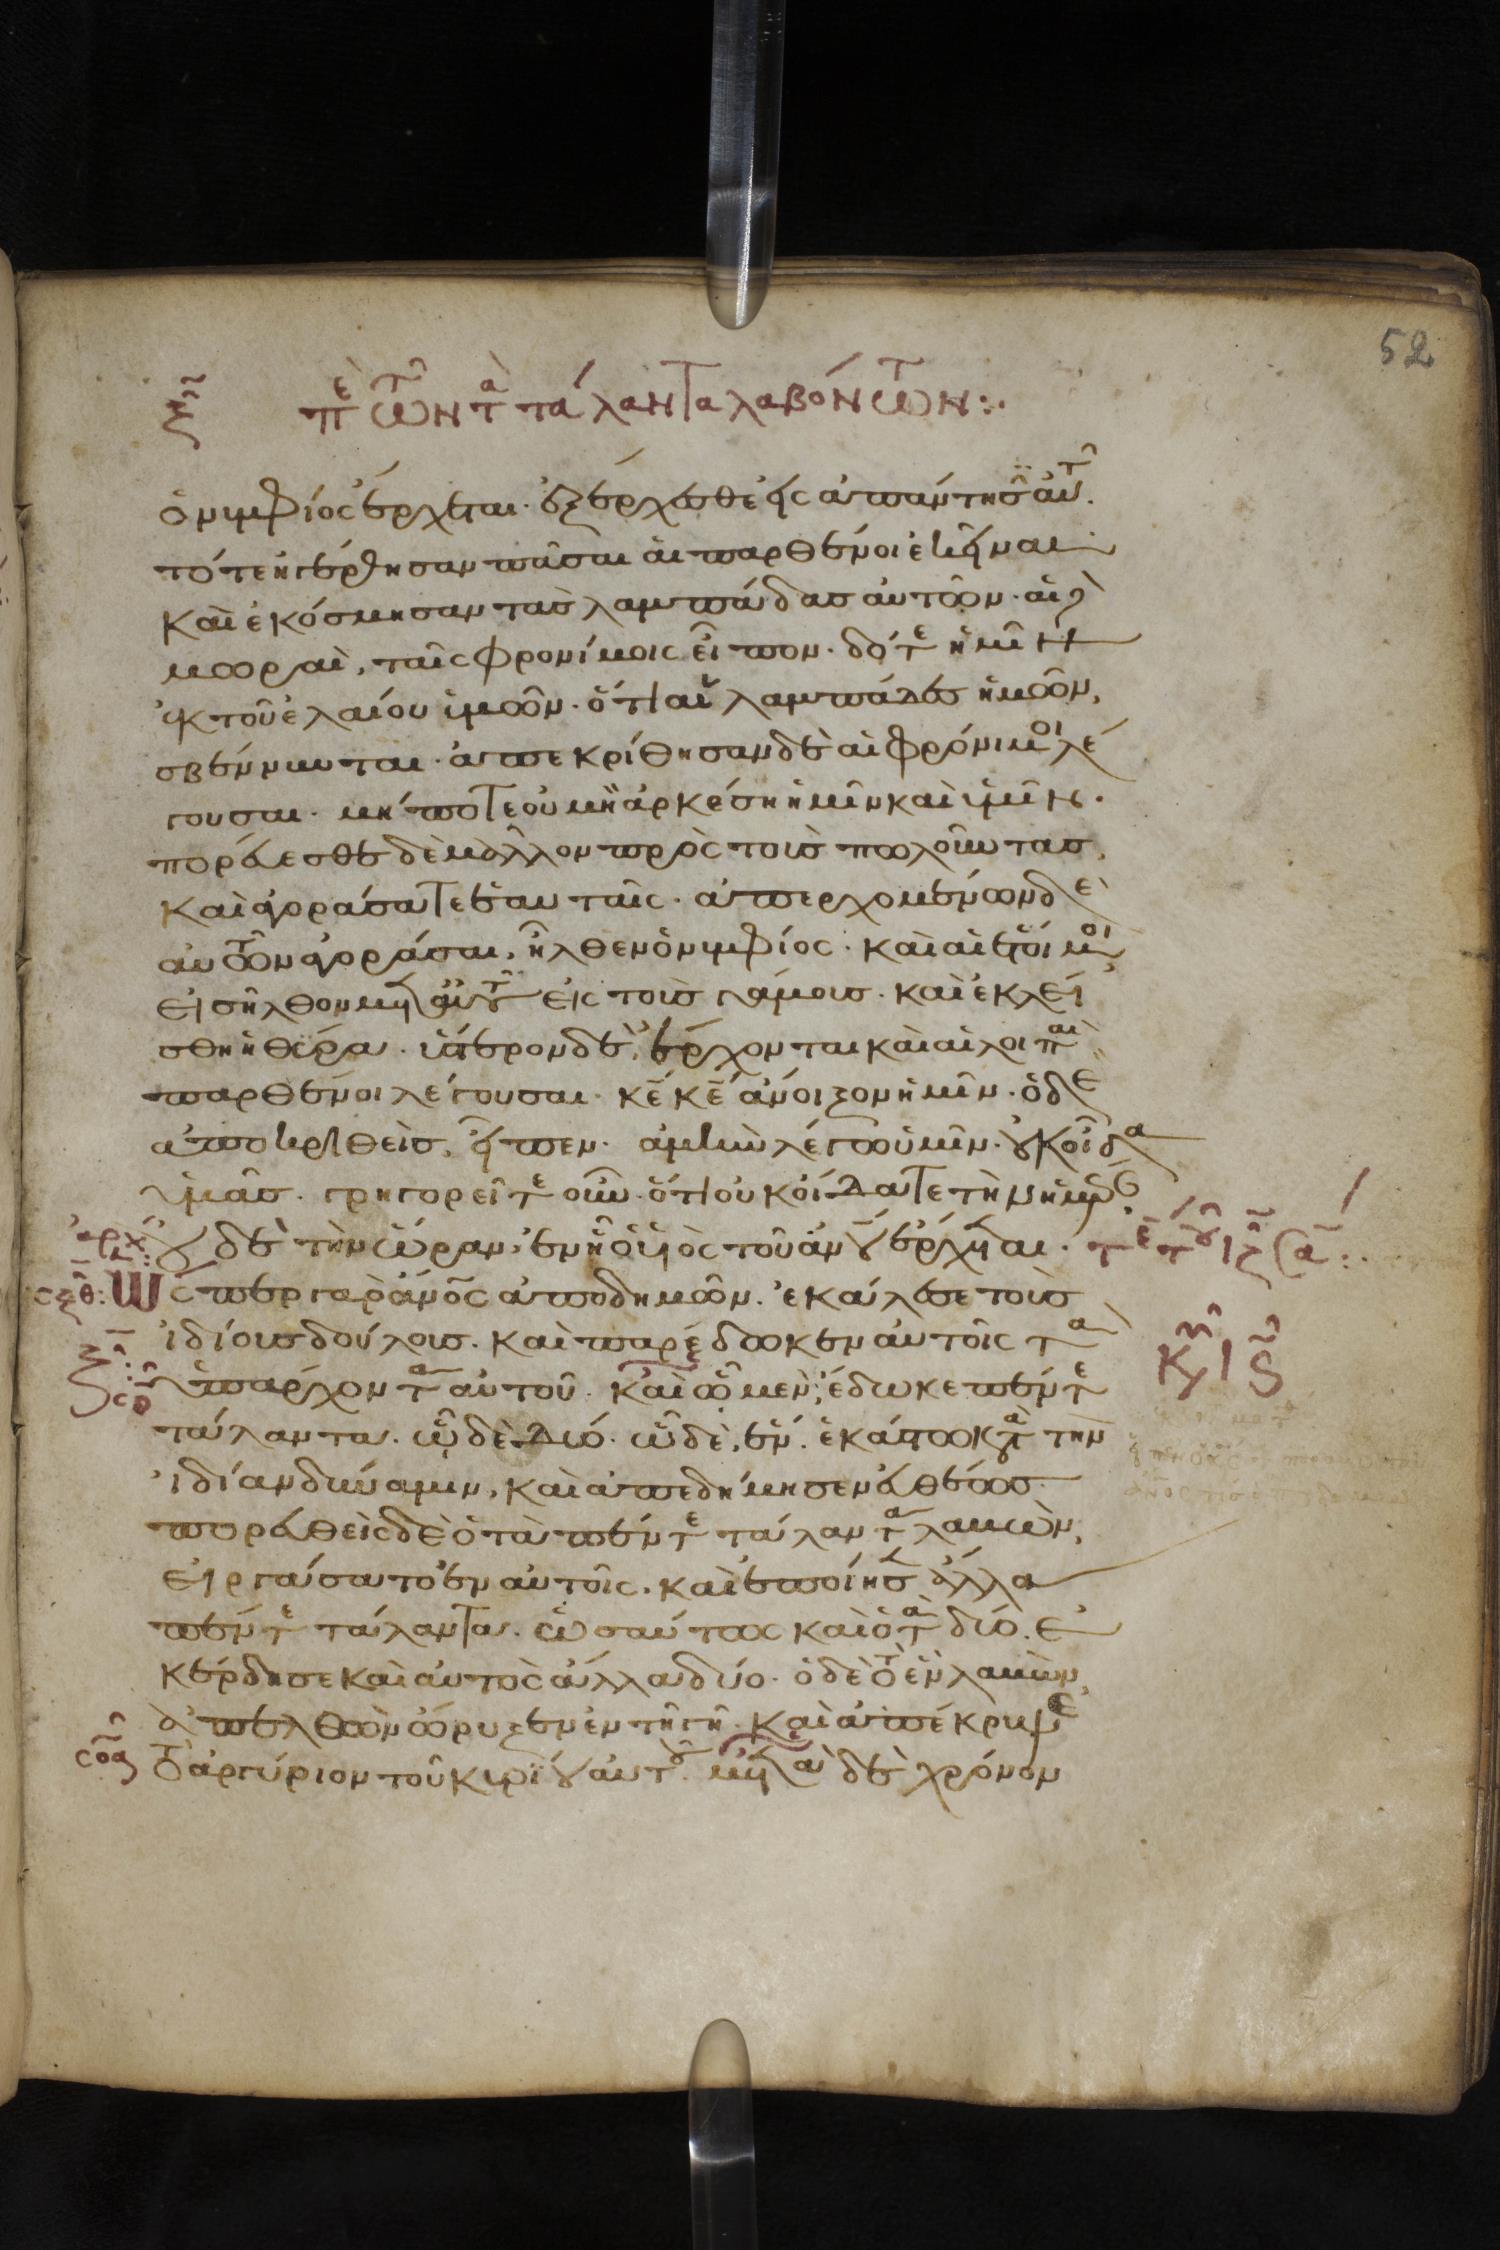 52
ξ̅ πὲ τῶν τὰ τάλαντα λαβόντων:·
ὁ νυμφίος ἔρχεται· ἐξέρχεσθε εἰς ἀπάντησιν αὐτ.
τότε ἠγέρθησαν πᾶσαι αἱ παρθένοι ἐκεῖναι
καὶ ἐκόσμησαν τὰς λαμπάδας αὐτῶν· αἱ δὲ
μωραὶ, ταῖς φρονίμοις εἶπον· δότε ἡμῖν
ἐκ τοῦ ἐλαίου ὑμῶν· ὅτι αἱ λαμπάδες ἡμῶν,
σβέννυνται· ἀπεκρίθησαν δὲ αἱ φρόνιμοι λέ
γουσαι· μήποτε οὐ μὴ ἀρκέσῃ ἡμῖν καὶ ὑμῖν·
πορεύεσθε δὲ μᾶλλον πρὸς τοὺς πωλοῦντας,
καὶ ἀγοράσατε ἑαυταῖς· ἀπερχομένων δὲ
αὐτῶν ἀγοράσαι, ἦλθεν ὁ νυμφίος· καὶ αἱ ἕτοιμοι
εἰσῆλθον μετ αὐτοῦ εἰς τοὺς γάμους· καὶ ἐκλεί
σθη ἡ θύρα· ὕστερον δὲ, ἔρχονται καὶ αἱ λοιπαὶ
παρθένοι λέγουσαι· κε̅ κε̅ ἄνοιξον ἡμῖν· ὁ δὲ
ἀποκριθεὶς, εἶπεν· ἀμὴν λέγω ὑμῖν· οὐκ οἶδα
ὑμᾶς· γρηγορεῖτε οὖν· ὅτι οὐκ οἴδατε τὴν ἡμέραν
οὐδὲ τὴν ὥραν, ἐν ᾗ ὁ υἱὸς τοῦ ἀνου ἔρχεται· τε τοῦ ιζ σα:·
ἀρχ:
σξθ: Ὥσπερ γὰρ ἄνος ἀποδημῶν· ἐκάλεσε τοὺς
ἰδίους δούλους· καὶ παρέδωκεν αὐτοῖς τὰ
κυ ιϛ
ξ: σο
ὑπάρχοντα αὐτοῦ· καὶ ᾧ μὲν, ἔδωκε πέντε
τάλαντα· ᾧ δὲ δύο· ᾧ δὲ, ἕν· ἑκάστω κατὰ τὴν
ἰδίαν δύναμιν, καὶ ἀπεδήμησεν εὐθέως·
πορευθεὶς δὲ ὁ τὰ πέντε τάλαντα λαβὼν,
εἰργάσατο ἐν αὐτοῖς· καὶ ἐποίησεν ἄλλα
πέντε τάλαντα· ὡσαύτως καὶ ὁ τὰ δύο· ἐ
κέρδησε καὶ αὐτὸς ἄλλα δύο· ὁ δὲ τὸ ἓν λαβὼν,
ἀπελθὼν ὤρυξεν ἐν τῇ γῇ· καὶ ἀπέκρυψε
σοα τὸ ἀργύριον τοῦ κυρίου αὐτοῦ· μετὰ δὲ χρόνον